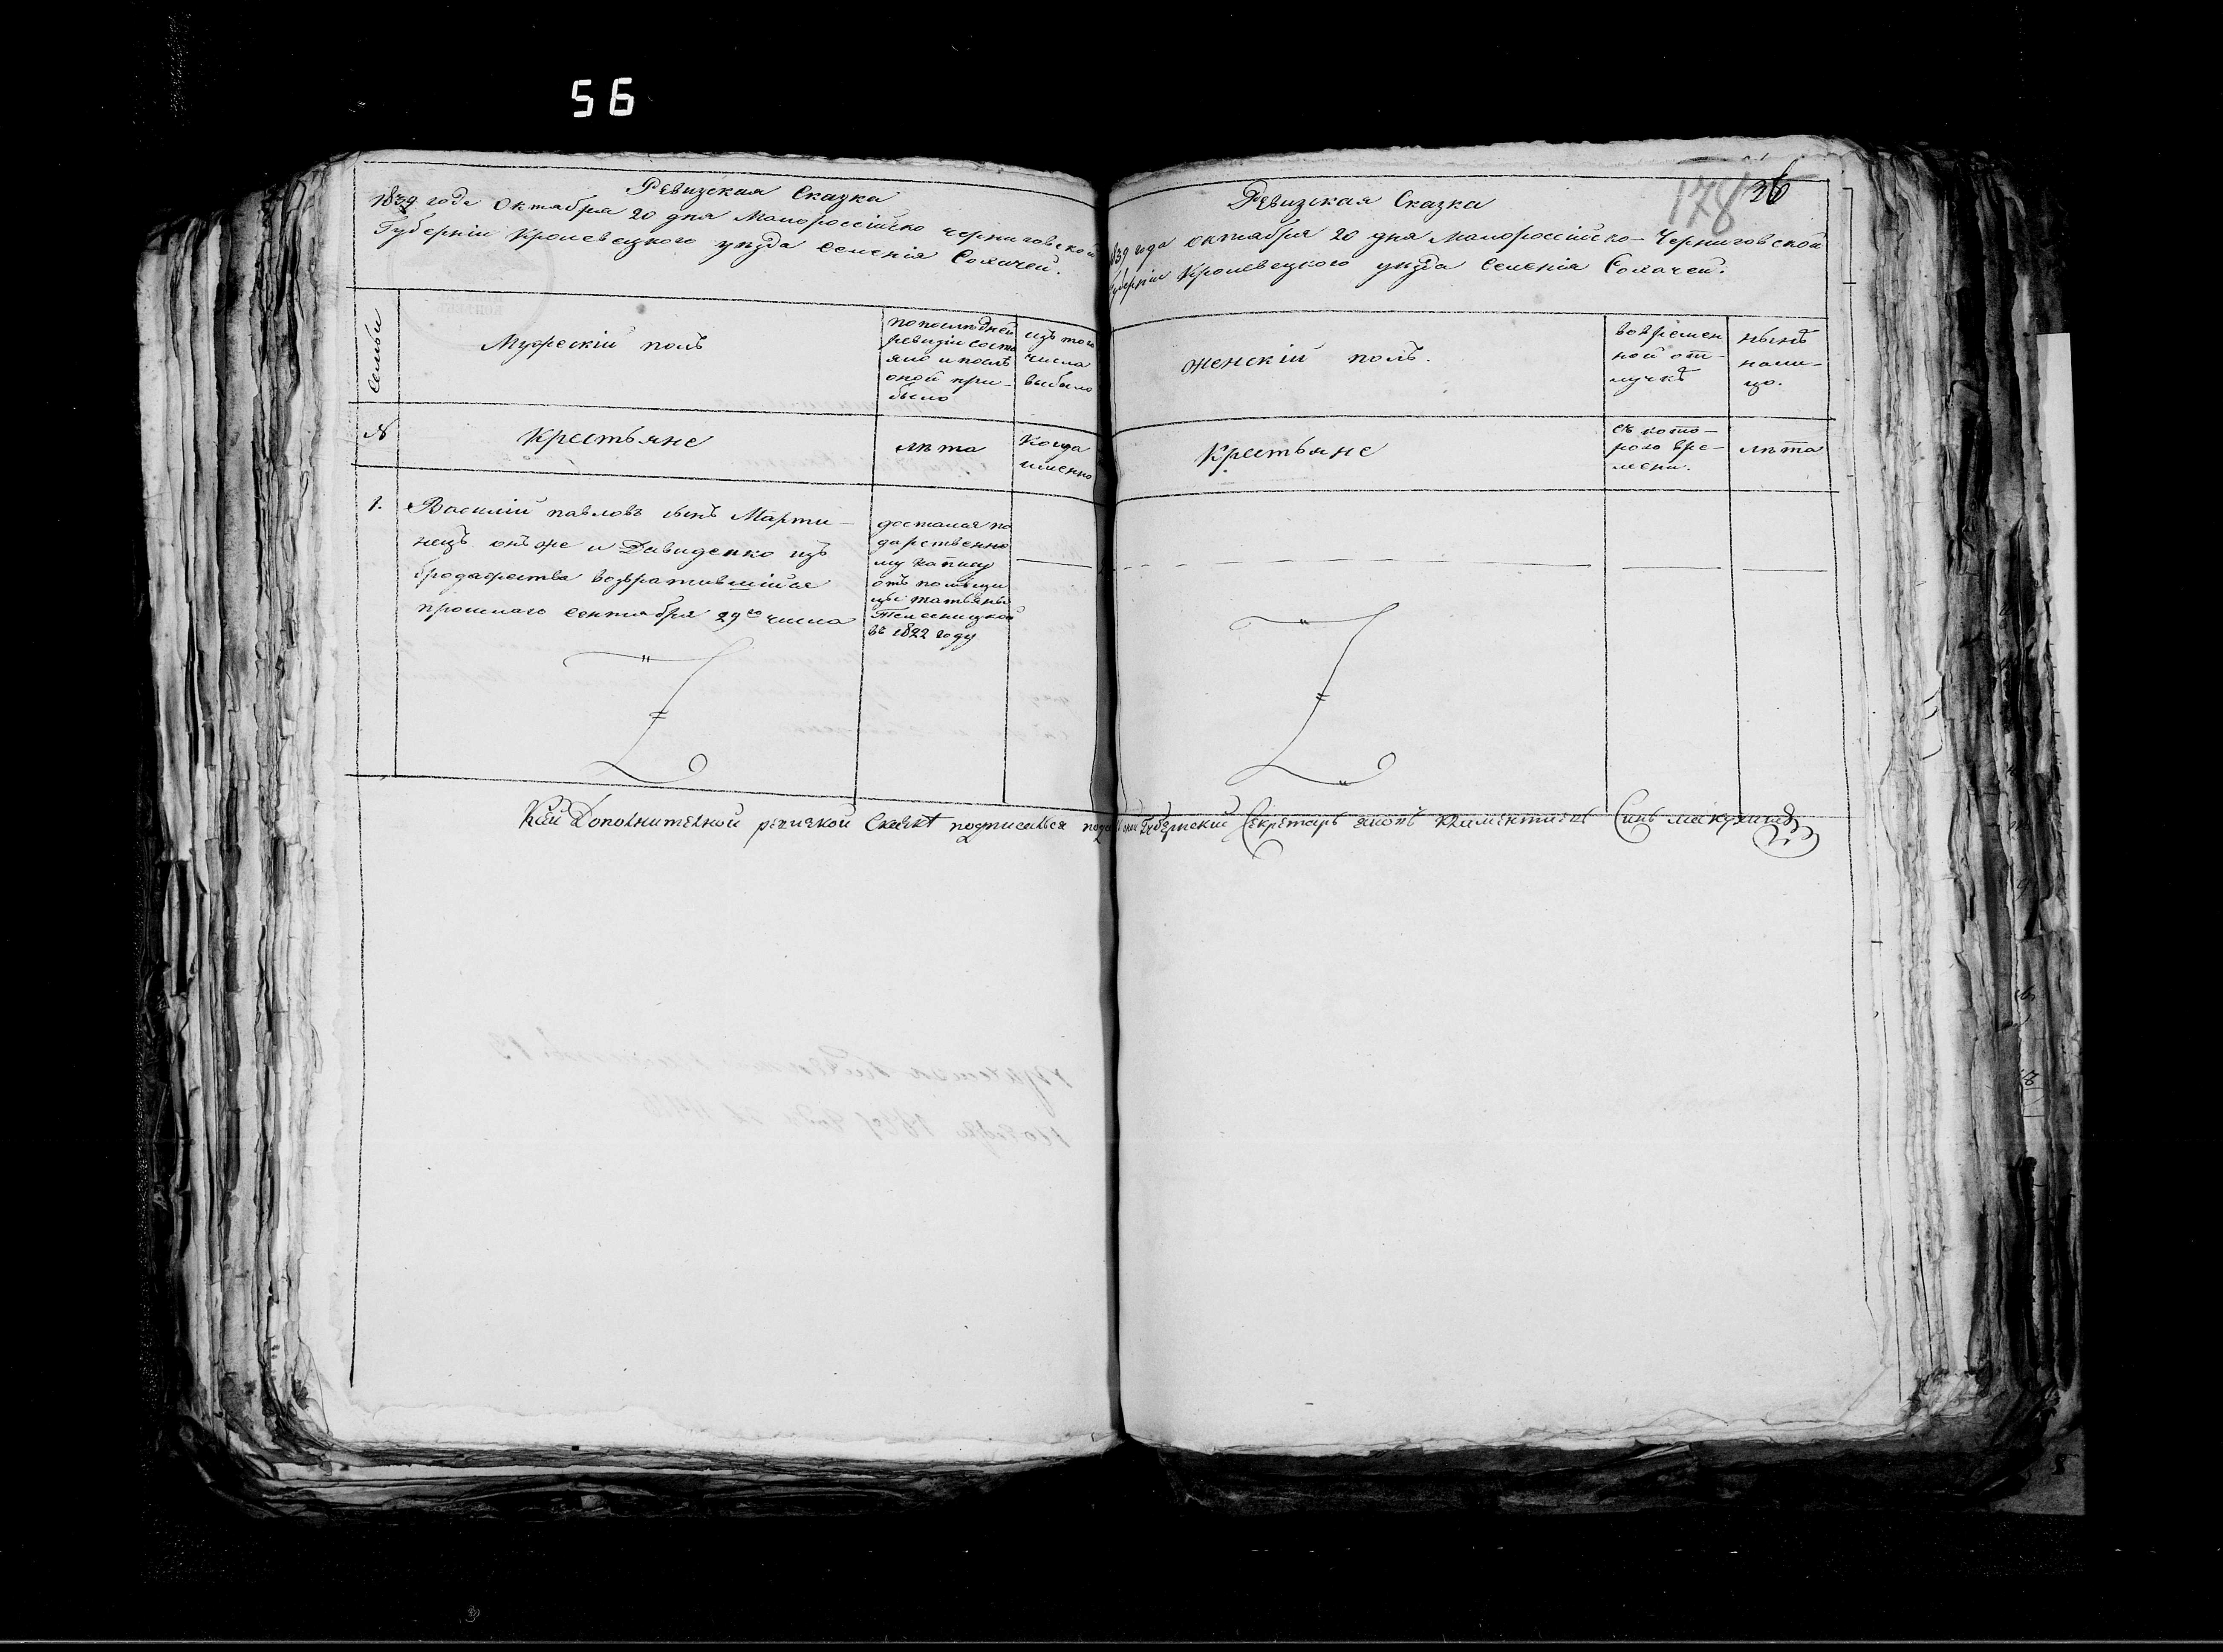 56
Ревизская Сказка
1839 года Октября 20 дня Малороссійско Черниговской
Губерніи Кролевецкого уезда Селенія Солачей.
Семьи
Мужескій полъ
по последней
ревизіи состо
яло и после
оной при-
было
изъ того
числа
выбыло
№
Крестьяне
лета
Когда
именно
1.
Василій павловъ сынъ Марти-
нецъ онъ же и Давиденко изъ
бродяжества возвратившійся
прошлаго Сентября 29го числа
достался по
дарственно
му запису
отъ помещи
цы татьяны
въ 1822 году
178
36
Ревизская Сказка
1839 года октября 20 дня Малороссійско-Черниговской
Губерніи Кролевецкого уезда Селенія Солачей.
Женскій полъ.
во времен
ной от-
лучкѣ
нынѣ
нали-
цо.
Крестьяне
съ кото-
рого вре-
мени.
лѣта
Сей Дополнителной ревизкой Сказки подписался Губернский Секретарь Синъ